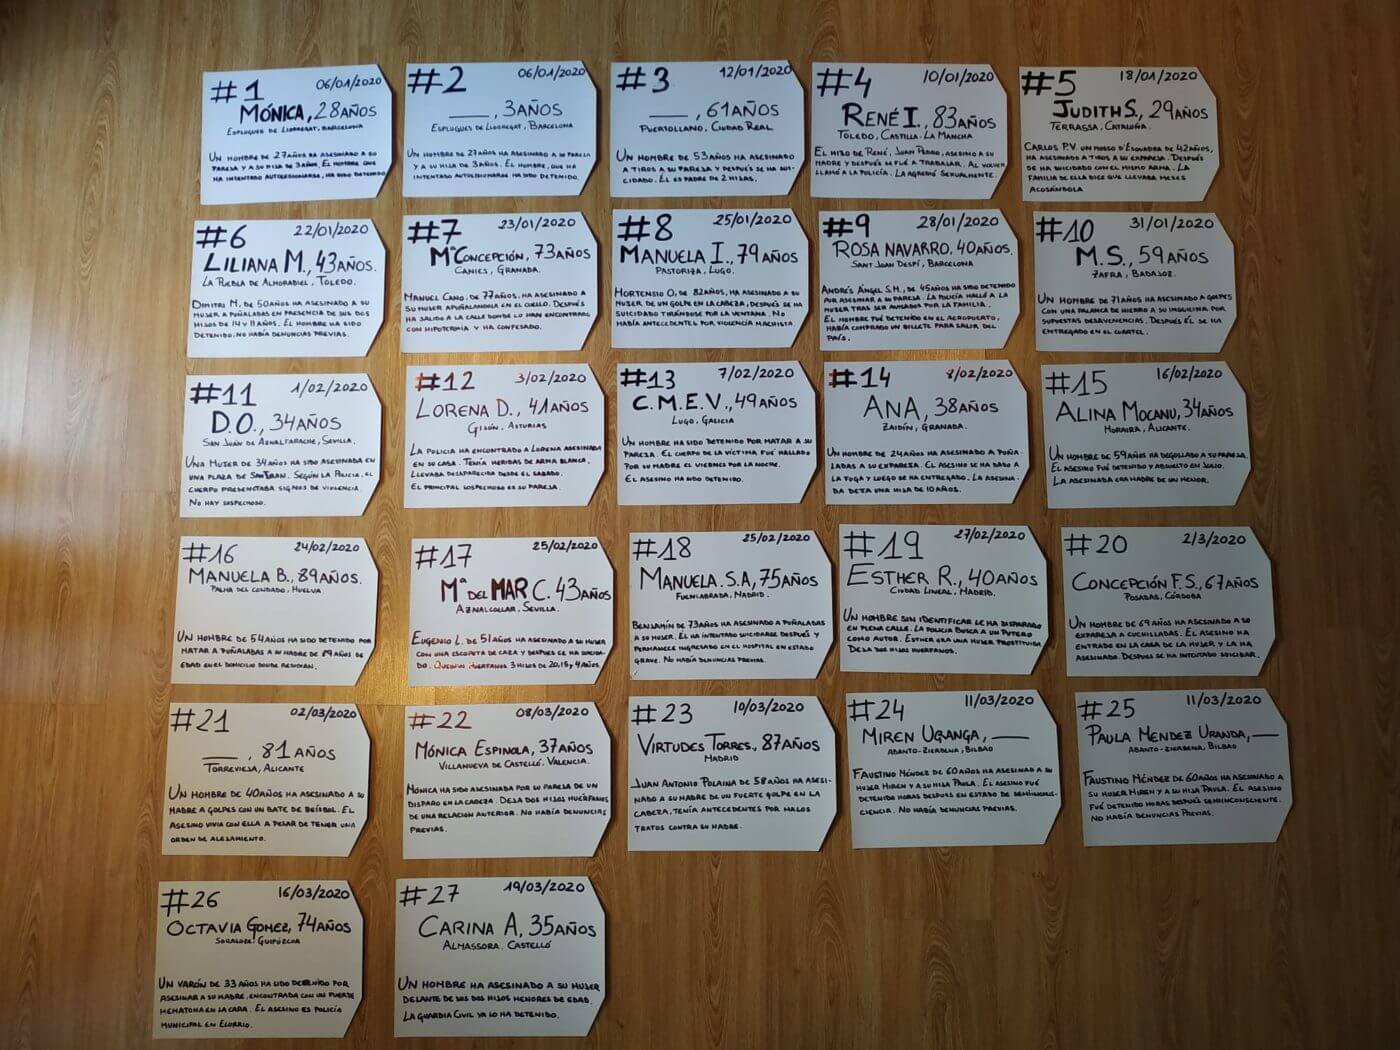 #1 06/01/2020
MÓNICA, 28 AÑOS
ESPLUGUES DE LLOBREGAT, BARCELONA
UN HOMBRE DE 27 AÑOS HA ASESINADO A SU
PAREJA Y A SU HIJA DE 3 AÑOS. EL HOMBRE QUE
HA INTENTADO AUTOLESIONARSE, HA SIDO DETENIDO
#2 06/01/2020
___, 3 AÑOS
ESPLUGUES DE LLOBREGAT, BARCELONA
UN HOMBRE DE 27 AÑOS HA ASESINADO A SU PAREJA
Y A SU HIJA DE 3 AÑOS. EL HOMBRE, QUE HA
INTENTADO AUTOLESIONARSE HA SIDO DETENIDO.
#3 12/01/2020
___, 61 AÑOS
PUERTOLLANO, CIUDAD REAL
UN HOMBRE DE 53 AÑOS HA ASESINADO
A TIROS A SU PAREJA Y DESPUÉS SE HA SUI-
CIDADO. ÉL ES PADRE DE 2 HIJAS.
#4 10/01/2020
RENÉ I., 83 AÑOS
TOLEDO, CASTILLA-LA MANCHA
EL HIJO DE RENÉ, JUAN PEDRO, ASESINÓ A SU
MADRE Y DESPUÉS SE FUÉ A TRABAJAR. AL VOLVER
LLAMÓ A LA POLICÍA. LA AGREDIÓ SEXUALMENTE.
#5 18/01/2020
JUDITH S., 29 AÑOS
TERRASSA, CATALUÑA.
CARLOS P.V UN MOSSO D'ESQUADRA DE 42 AÑOS,
HA ASESINADO A TIROS A SU EXPAREJA. DESPUÉS
SE HA SUICIDADO CON EL MISMO ARMA. LA
FAMILIA DE ELLA DICE QUE LLEVABA MESES
ACOSÁNDOLA
#6 22/01/2020
LILIANA M., 43 AÑOS.
LA PUEBLA DE ALMORADIEL, TOLEDO.
DIMITRI M, DE 50 AÑOS HA ASESINADO A SU
MUJER A PUÑALADAS EN PRESENCIA DE SUS DOS
HIJOS DE 14 Y 11 AÑOS. EL HOMBRE HA SIDO
DETENIDO. NO HABÍA DENUNCIAS PREVIAS.
#7 23/01/2020
Mª CONCEPCIÓN, 73 AÑOS
CANILES, GRANADA.
MANUEL CANO, DE 77 AÑOS, HA ASESINADO A
SU MUJER APUÑALANDOLA EN EL CUELLO. DESPUÉS
HA SALIDO A LA CALLE DONDE LO HAN ENCONTRADO
CON HIPOTERMIA Y HA CONFESADO.
#8 25/01/2020
MANUELA I., 79 AÑOS
PASTORIZA, LUGO.
HORTENSIO O, DE 82 AÑOS, HA ASESINADO A SU
MUJER DE UN GOLPE EN LA CABEZA, DESPUÉS SE HA
SUICIDADO TIRÁNDOSE POR LA VENTANA. NO
HABÍA ANTECEDENTES POR VIOLENCIA MACHISTA.
#9 28/01/2020
ROSA NAVARRO. 40 AÑOS.
SANT JOAN DESPÍ, BARCELONA
ANDRÉS ÁNGEL S.M, DE 45 AÑOS HA SIDO DETENIDO
POR ASESINAR A SU PAREJA. LA POLICÍA HALLÓ A LA
MUJER TRAS SER AVISADOS POR LA FAMILIA.
EL HOMBRE FUÉ DETENIDO EN EL AEROPUERTO,
HABÍA COMPRADO UN BILLETE PARA SALIR DEL
PAÍS.
#10 31/01/2020
M.S., 59 AÑOS
ZAFRA, BADAJOZ.
UN HOMBRE DE 71 AÑOS HA ASESINADO A GOLPES
CON UNA PALANCA DE HIERRO A SU INQUILINA POR
SUPUESTAS DESAVENENCIAS. DESPUÉS ÉL SE HA
ENTREGADO EN EL CUARTEL.
#11 1/02/2020
D.O., 34 AÑOS
SAN JUAN DE AZNALFARACHE, SEVILLA.
UNA MUJER DE 34 AÑOS HA SIDO ASESINADA EN
UNA PLAZA DE SAN JUAN. SEGÚN LA POLICIA, EL
CUERPO PRESENTABA SIGNOS DE VIOLENCIA.
NO HAY SOSPECHOSO.
#12 3/02/2020
LORENA D., 41 AÑOS
GIJÓN, ASTURIAS
LA POLICÍA HA ENCONTRADO A LORENA ASESINADA
EN SU CASA. TENÍA HERIDAS DE ARMA BLANCA,
LLEVABA DESAPARECIDA DESDE EL SÁBADO.
EL PRINCIPAL SOSPECHOSO ES SU PAREJA.
#13 7/02/2020
C.M.E.V., 49 AÑOS
LUGO, GALICIA
UN HOMBRE HA SIDO DETENIDO POR MATAR A SU
PAREJA. EL CUERPO DE LA VÍCTIMA FUE HALLADO
POR SU MADRE EL VIERNES POR LA NOCHE.
EL ASESINO HA SIDO DETENIDO.
#14 8/02/2020
ANA, 38 AÑOS
ZAIDÍN, GRANADA.
UN HOMBRE DE 24 AÑOS HA ASESINADO A PUÑA-
LADAS A SU EXPAREJA. EL ASESINO SE HA DADO A
LA FUGA Y LUEGO SE HA ENTREGADO. LA ASESINA-
DA DEJA UNA HIJA DE 10 AÑOS.
#15 16/02/2020
ALINA MOCANU, 34 AÑOS
MORAIRA, ALICANTE.
UN HOMBRE DE 59 AÑOS HA DEGOLLADO A SU PAREJA.
EL ASESINO FUE DETENIDO Y ABSUELTO EN JULIO.
LA ASESINADA ERA MADRE DE UN MENOR.
#16 24/02/2020
MANUELA B., 89 AÑOS.
PALMA DEL CONDADO, HUELVA.
UN HOMBRE DE 54 AÑOS HA SIDO DETENIDO POR
MATAR A PUÑALADAS A SU MADRE DE 89 AÑOS DE
EDAD EN EL DOMICILIO DONDE RESIDÍAN.
#17 25/02/2020
Mª DEL MAR C. 43 AÑOS
AZNALCOLLAR, SEVILLA.
EUGENIO L. DE 51 AÑOS HA ASESINADO A SU MUJER
CON UNA ESCOPETA DE CAZA Y DESPUES SE HA SUICIDA-
DO. QUEDAN HUÉRFANOS 3 HIJOS DE 20, 15 Y 4 AÑOS.
#18 25/02/2020
MANUELA. S.A, 75 AÑOS
FUENLABRADA, MADRID.
BENJAMÍN DE 73 AÑOS HA ASESINADO A PUÑALADAS
A SU MUJER. ÉL HA INTENTADO SUICIDARSE DESPUÉS Y
PERMANECE INGRESADO EN EL HOSPITAL EN ESTADO
GRAVE. NO HABÍA DENUNCIAS PREVIAS.
#19 27/02/2020
ESTHER R., 40 AÑOS
CIUDAD LINEAL, MADRID.
UN HOMBRE SIN IDENTIFICAR LE HA DISPARADO
EN PLENA CALLE. LA POLICIA BUSCA A UN PUTERO
COMO AUTOR. ESTHER ERA UNA MUJER PROSTITUIDA
DEJA DOS HIJOS HUÉRFANOS.
#20 2/3/2020
CONCEPCIÓN F.S., 67 AÑOS
POSADAS, CÓRDOBA
UN HOMBRE DE 69 AÑOS HA ASESINADO A SU
EXPAREJA A CUCHILLADAS. EL ASESINO HA
ENTRADO EN LA CASA DE LA MUJER Y LA HA
ASESINADO. DESPUES SE HA INTENTADO SUICIDAR.
#21 02/03/2020
___, 81 AÑOS
TORREVIEJA, ALICANTE
UN HOMBRE DE 40 AÑOS HA ASESINADO A SU
MADRE A GOLPES CON UN BATE DE BÉISBOL. EL
ASESINO VIVIA CON ELLA A PESAR DE TENER UNA
ORDEN DE ALEJAMIENTO.
#22 08/03/2020
MÓNICA ESPINOLA, 37 AÑOS
VILLANUEVA DE CASTELLÓ. VALENCIA.
MÓNICA HA SIDO ASESINADA POR SU PAREJA DE UN
DISPARO EN LA CABEZA. DEJA DOS HIJOS HUÉRFANOS
DE UNA RELACIÓN ANTERIOR. NO HABÍA DENUNCIAS
PREVIAS.
#23 10/03/2020
VIRTUDES TORRES, 87 AÑOS
MADRID
JUAN ANTONIO POLAINA DE 58 AÑOS, HA ASESI-
NADO A SU MADRE DE UN FUERTE GOLPE EN LA
CABEZA, TENÍA ANTECEDENTES POR MALOS
TRATOS CONTRA SU MADRE.
#24 11/03/2020
MIREN URANGA, ___
ABANTO-ZIERBENA, BILBAO
FAUSTINO MÉNDEZ DE 60 AÑOS HA ASESINADO A SU
MUJER MIREN Y A SU HIJA PAULA. EL ASESINO FUÉ
DETENIDO HORAS DESPUÉS EN ESTADO DE SEMIINCONS-
CIENCIA. NO HABÍA DENUNCIAS PREVIAS.
#25 11/03/2020
PAULA MENDEZ URANDA, ___
ABANTO-ZIERBENA, BILBAO
FAUSTINO MÉNDEZ DE 60 AÑOS HA ASESINADO A
SU MUJER MIREN Y A SU HIJA PAULA. EL ASESINO
FUÉ DETENIDO HORAS DESPUÉS SEMIINCONSCIENTE.
NO HABÍA DENUNCIAS PREVIAS.
#26 16/03/2020
OCTAVIA GOMEZ, 74 AÑOS
SORALUZE. GUIPÚZCOA
UN VARÓN DE 33 AÑOS HA SIDO DETENIDO POR
ASESINAR A SU MADRE, ENCONTRADA CON UN FUERTE
HEMATOMA EN LA CARA. EL ASESINO ES POLICÍA
MUNICIPAL EN ELORRIO.
#27 19/03/2020
CARINA A, 35 AÑOS
ALMASSORA. CASTELLÓ
UN HOMBRE HA ASESINADO A SU MUJER
DELANTE DE SUS DOS HIJOS MENORES DE EDAD.
LA GUARDIA CIVIL YA LO HA DETENIDO.